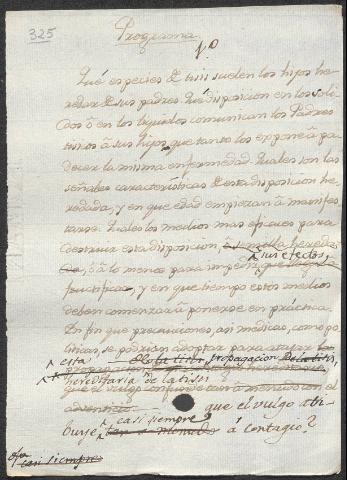 325
Programa
1º
Qué especies de tisis suelen los hijos he-
redar de sus padres. Qué disposicion en los soli-
dos ô en los liquidos comunican los Padres
tisicos à sus hijos, que tanto los expone à pa-
decer la misma enfermedad. Quales son las
señales caracteristicas de esta disposicion he-
redada, y en que edad empiezan à manifes-
tarse. Quales los medios mas eficaces para
destruir esta disposicion ô semilla hereda-
da, ô à lo menos para impedir sus efectos,
fructificar, y en que tiempo estos medios
deben comenzar à ponerse en práctica.
En fin que precauciones, asi médicas, como po-
liticas, se podrian adoptar para atajar la
esta propagacion de la tisis,
hereditaria
que el vulgo
que el vulgo atri-
buye casi siempre à contagio?
casi siempre